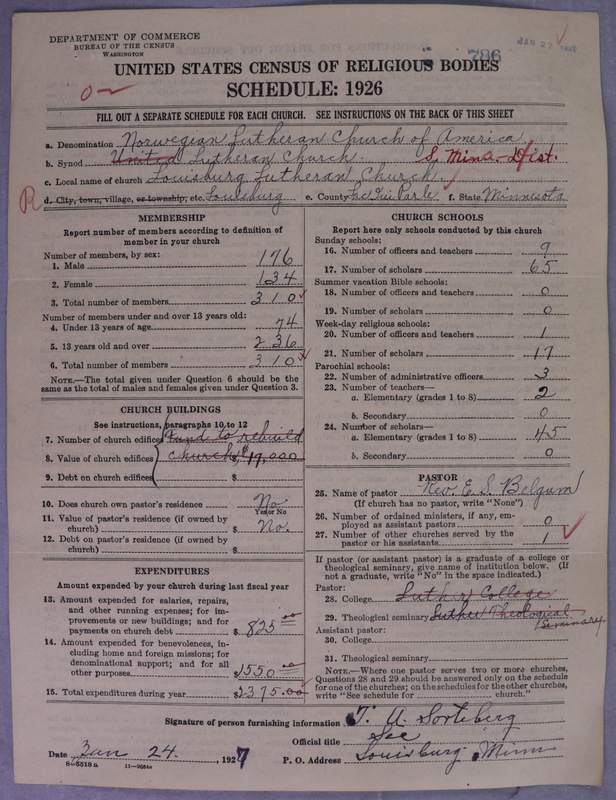 DEPARTMENT OF COMMERCE
BUREAU OF THE CENSUS
WASHINGTON
786
JAN 27
UNITED STATES CENSUS OF RELIGIOUS BODIES
SCHEDULE: 1926
FILL OUT A SEPARATE SCHEDULE FOR EACH CHURCH. SEE INSTRUCTIONS ON THE BACK OF THIS SHEET
a. Denomination Norwegian Lutheran Church of America
b. Synod United Lutheran Church. S. Minn. Dist.
c. Local name of church Louisburg Lutheran Church
R d. City, town, village, or township, etc. Louisburg e. County Lac Qui Parle f. State Minnesota
MEMBERSHIP
Report number of members according to definition of
member in your church
Number of members, by sex:
1. Male 176
2. Female 134
3. Total number of members 310
Number of members under and over 13 years old:
4. Under 13 years of age 74
5. 13 years old and over 236
6. Total number of members 310
NOTE.—The total given under Question 6 should be
the same as the total of males and females given under Question 3.
CHURCH BUILDINGS
See instructions, paragraphs 10 to 12
7. Number of church edifices Fund to rebuild
8. Value of church edifices church $19,000
9. Debt on church edifices $
10. Does church own pastor's residence No
Yes or No
11. Value of pastor's residence (if owned by
church) $ No.
12. Debt on pastor's residence (if owned by
church) $
EXPENDITURES
Amount expended by your church during last fiscal year
13. Amount expended for salaries, repairs,
and other running expenses; for im-
provements or new buildings; and for
payments on church debt $ 825 00
14. Amount expended for benevolences, in-
cluding home and foreign missions; for
denominational support; and for all
other purposes $1550 00
15. Total expenditures during year $2375.00
CHURCH SCHOOLS
Report here only schools conducted by this church
Sunday schools:
16. Number of officers and teachers 9
17. Number of scholars 65
Summer vacation Bible schools:
18. Number of officers and teachers 0
19. Number of scholars 0
Week-day religious schools:
20. Number of officers and teachers 1
21. Number of scholars 17
Parochial schools:
22. Number of administrative officers 3
23. Number of teachers—
a. Elementary (grades 1 to 8) 2
b. Secondary 0
24. Number of scholars—
a. Elementary (grades 1 to 8) 45
b. Secondary 0
PASTOR
25. Name of pastor Rev. E. S. Belgum
(If church has no pastor, write "None")
26. Number of ordained ministers, if any, em-
ployed as assistant pastors 0
27. Number of other churches served by the
pastor or his assistants 1
If pastor (or assistant pastor) is a graduate of a college or
theological seminary, give name of institution below. (If
not a graduate, write "No" in the space indicated.)
Pastor:
28. College Luther College
29. Theological seminary Luther Theological
Seminary
Assistant pastor:
30. College
31. Theological seminary
NOTE.—Where one pastor serves two or more churches,
Questions 28 and 29 should be answered only on the schedule
for one of the churches; on the schedules for the other churches,
write "See schedule for church."
Signature of person furnishing information T. A. Sorteberg
Official title Sec
Date Jan 24, 1927 P. O. Address Louisburg Minn
8-5518a 11-9654a